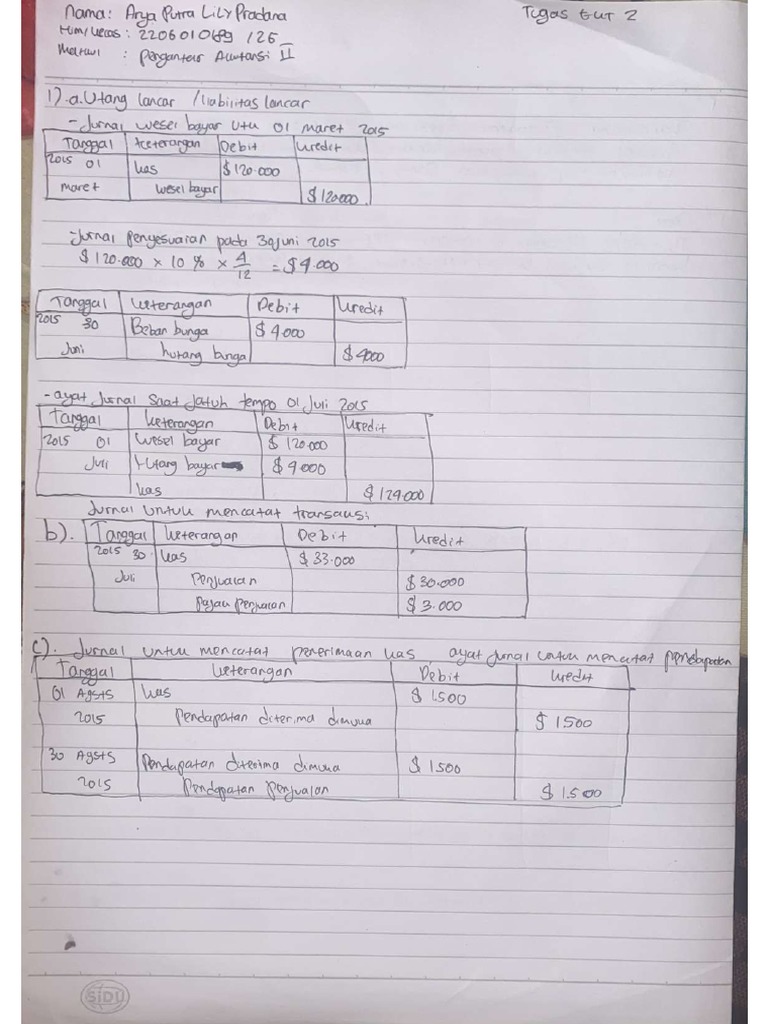 Nama: Arya Putra Lily Pradana Tugas Ewt 2
Num/kelas: 2206010689 /26
Matkul : Pengantar Akuntansi II
1). a. Utang lancar /liabilitas lancar
- Jurnal wesel bayar utk 01 maret 2015
Tanggal Keterangan Debit Kredit
2015 01 kas $ 120.000
maret wesel bayar $ 120000
- Jurnal Penyesuaian pada 30 Juni 2015
$ 120.000 × 10 % × 4/12 = $ 4.000
Tanggal keterangan Debit Kredit
2015 30 Beban bunga $ 4.000
Juni hutang bunga $ 4000
- ayat Jurnal Saat Jatuh tempo 01 Juli 2015
Tanggal keterangan Debit Kredit
2015 01 Wesel bayar $ 120.000
Juli Hutang bayar $ 4.000
kas $ 124.000
Jurnal untuk mencatat transaksi
b). Tanggal keterangan Debit Kredit
2015 30 kas $ 33.000
Juli Penjualan $ 30.000
Pajak penjualan $ 3.000
c). Jurnal untuk mencatat penerimaan kas ayat jurnal untuk mencatat pendapatan
Tanggal keterangan Debit kredit
01 Agsts kas $ 1500
2015 Pendapatan diterima dimuka $ 1500
30 Agsts Pendapatan diterima dimuka $ 1500
2015 Pendapatan Penjualan $ 1.500
SIDU